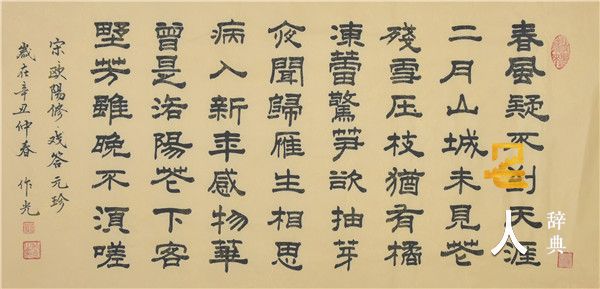 春風疑不到天涯
二月山城未見花
殘雪压枝猶有橘
凍蕾驚笋欲抽芽
夜聞歸雁生相思
病入新年感物華
曾是洛陽花下客
野芳雖晚不須嗟
宋歐陽修戏答元珍
歲在辛丑仲春 作光
名人辞典